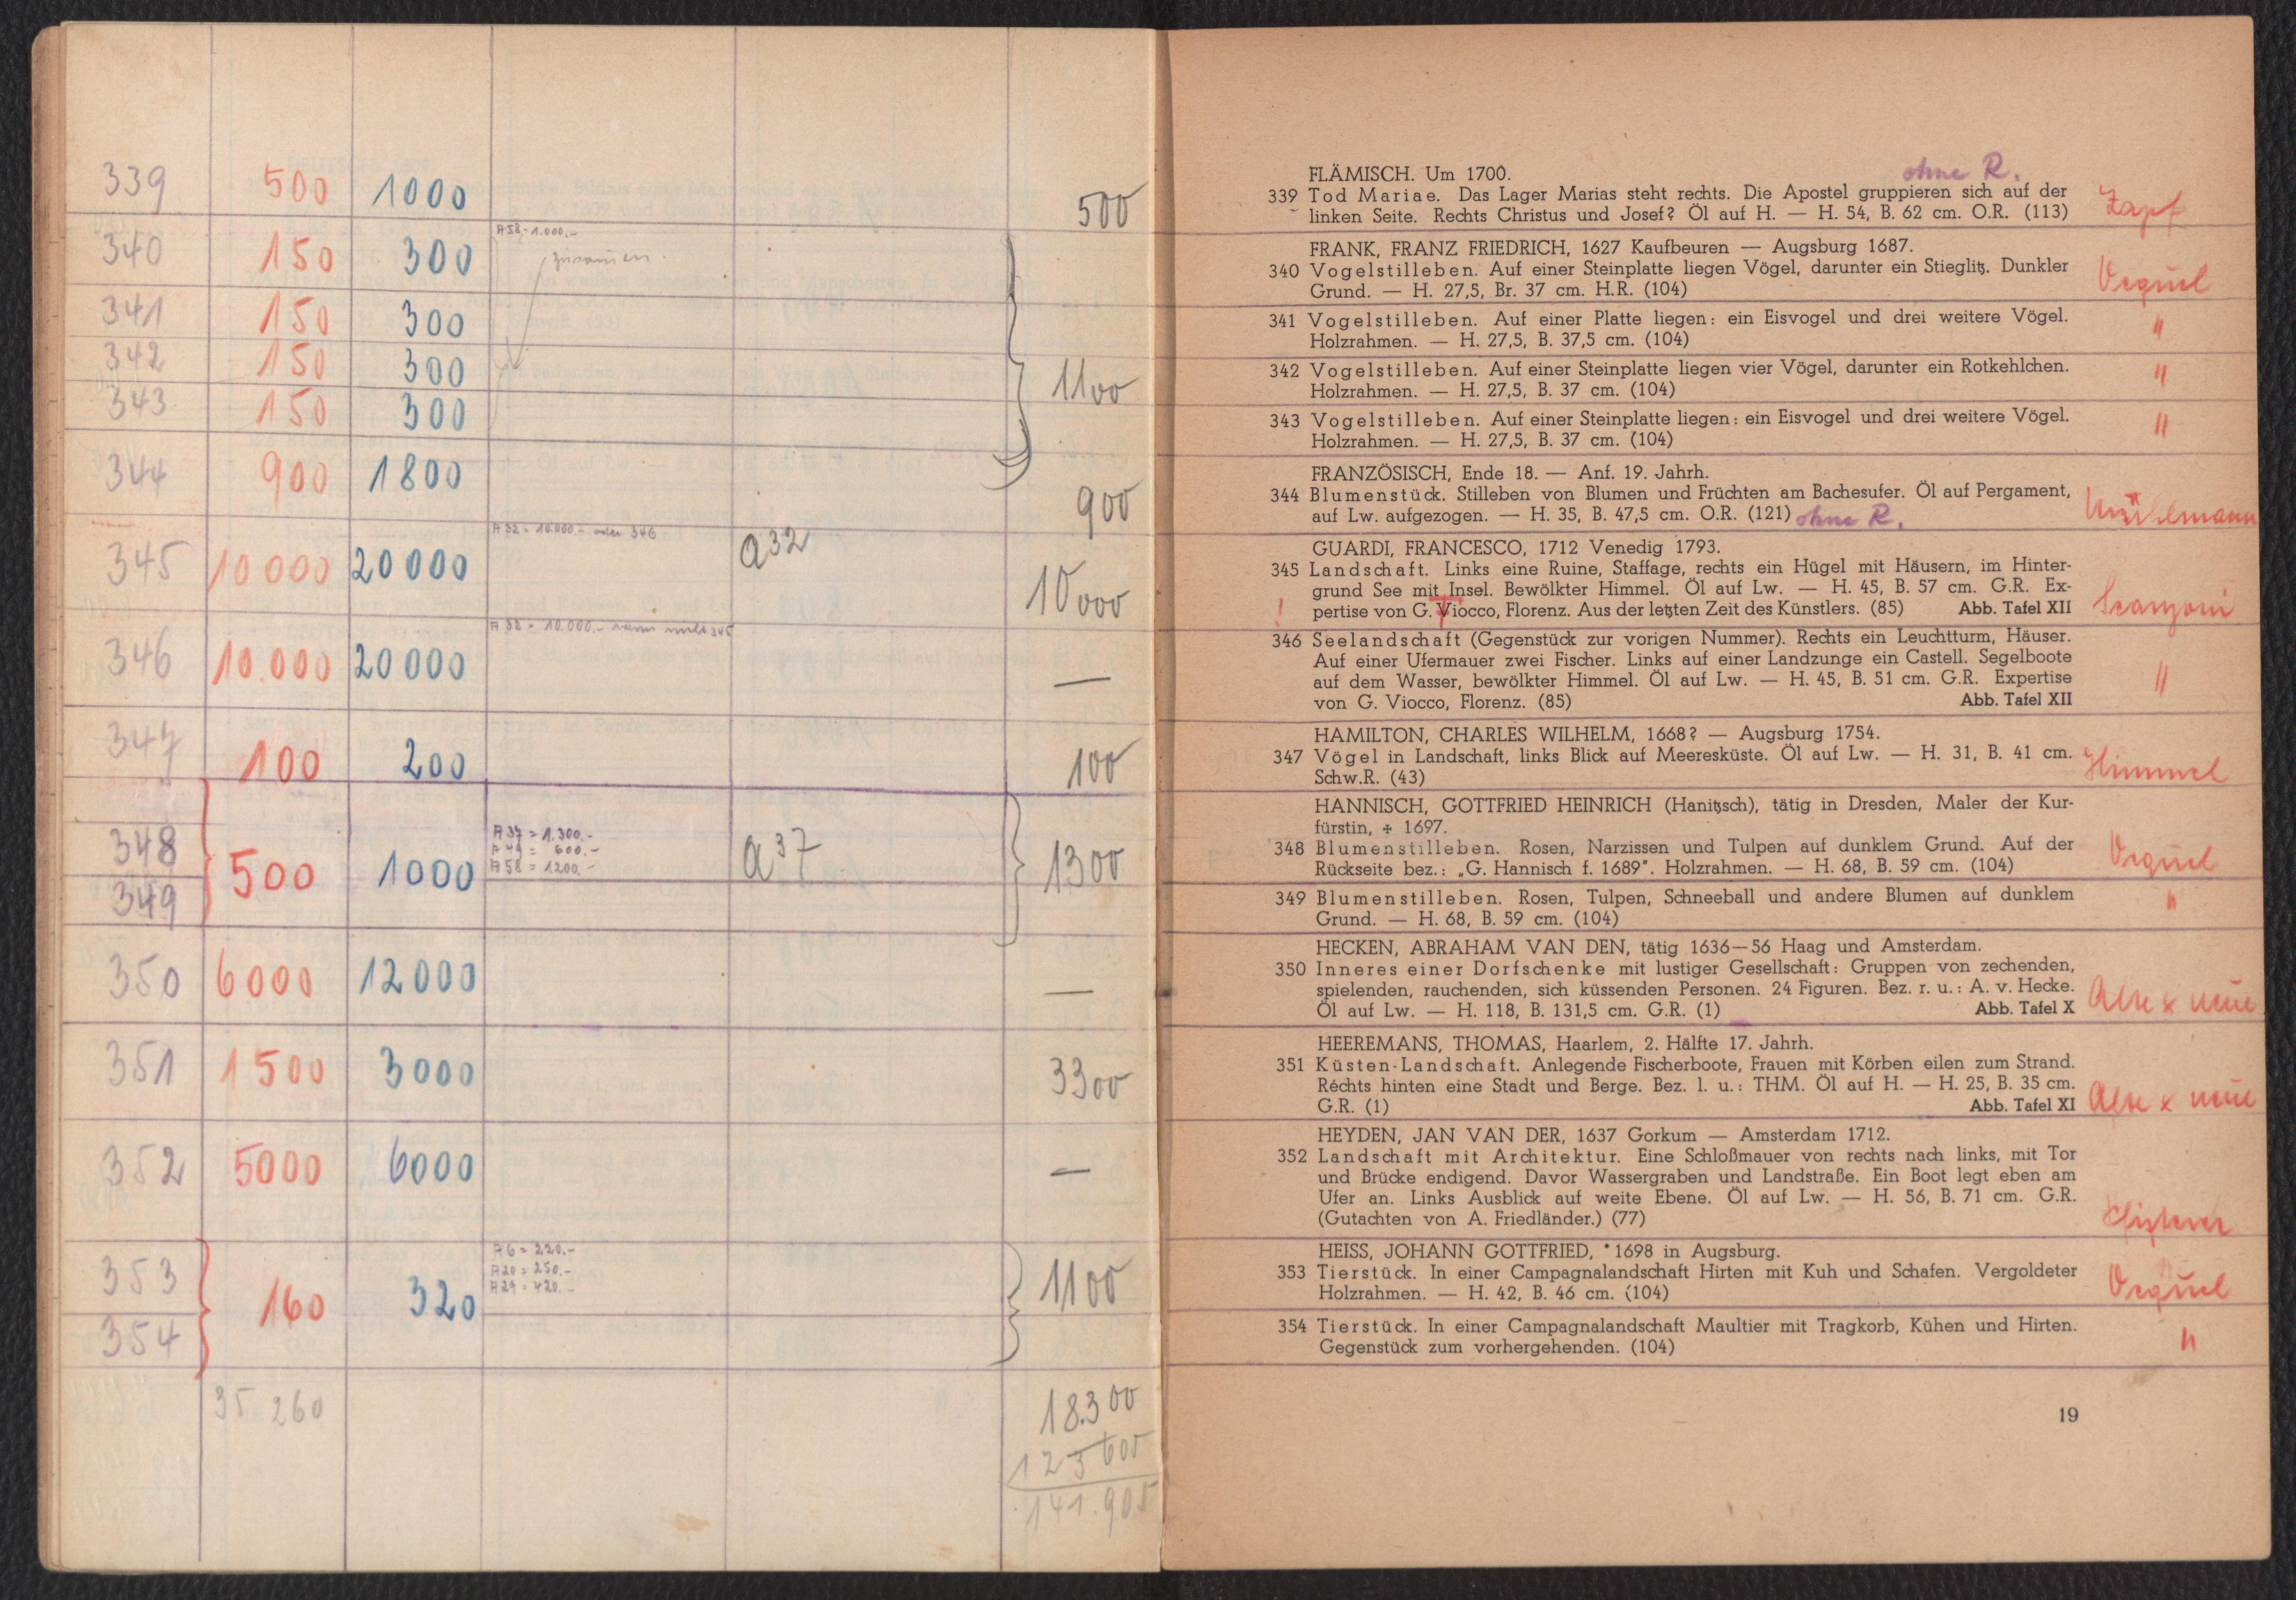 339 500 1000 500
A58 - 1.000.-
340 150 300 zusammen.
341 150 300
342 150 300 1100
343 150 300
344 900 1800 900
A32 = 10.000.- oder 346
345 10 000 20 000 a32 10 000
A32 = 10.000.- wenn nicht 345
346 10.000 20 000 —
347 100 200 100
A37 = 1.300.-
A49 = 600.-
A58 = 1200.-
348
349 500 1000 a37 1300
350 6000 12000 —
351 1500 3000 3300
352 5000 6000 —
A6 = 220.-
A20 = 250.-
A29 = 420.-
353
354 160 320 1100
35 260 18.300
123 600
141.900
FLÄMISCH. Um 1700. ohne R.
339 Tod Mariae. Das Lager Marias steht rechts. Die Apostel gruppieren sich auf der
linken Seite. Rechts Christus und Josef? Öl auf H. — H. 54, B. 62 cm. O.R. (113) Zapf
FRANK, FRANZ FRIEDRICH, 1627 Kaufbeuren — Augsburg 1687.
340 Vogelstilleben. Auf einer Steinplatte liegen Vögel, darunter ein Stieglitz. Dunkler
Grund. — H. 27,5, Br. 37 cm. H.R. (104) Vequel
341 Vogelstilleben. Auf einer Platte liegen: ein Eisvogel und drei weitere Vögel. "
Holzrahmen. — H. 27,5, B. 37,5 cm. (104)
342 Vogelstilleben. Auf einer Steinplatte liegen vier Vögel, darunter ein Rotkehlchen. "
Holzrahmen. — H. 27,5, B. 37 cm. (104)
343 Vogelstilleben. Auf einer Steinplatte liegen: ein Eisvogel und drei weitere Vögel. "
Holzrahmen. — H. 27,5, B. 37 cm. (104)
FRANZÖSISCH, Ende 18. — Anf. 19. Jahrh.
344 Blumenstück. Stilleben von Blumen und Früchten am Bachesufer. Öl auf Pergament,
auf Lw. aufgezogen. — H. 35, B. 47,5 cm. O.R. (121) ohne R.
GUARDI, FRANCESCO, 1712 Venedig 1793.
345 Landschaft. Links eine Ruine, Staffage, rechts ein Hügel mit Häusern, im Hinter-
grund See mit Insel. Bewölkter Himmel. Öl auf Lw. — H. 45, B. 57 cm. G.R. Ex-
! pertise von G. Viocco, Florenz. Aus der letzten Zeit des Künstlers. (85) Abb. Tafel XII Scanzoni
346 Seelandschaft (Gegenstück zur vorigen Nummer). Rechts ein Leuchtturm, Häuser.
Auf einer Ufermauer zwei Fischer. Links auf einer Landzunge ein Castell. Segelboote
auf dem Wasser, bewölkter Himmel. Öl auf Lw. — H. 45, B. 51 cm. G.R. Expertise "
von G. Viocco, Florenz. (85) Abb. Tafel XII
HAMILTON, CHARLES WILHELM, 1668? — Augsburg 1754.
347 Vögel in Landschaft, links Blick auf Meeresküste. Öl auf Lw. — H. 31, B. 41 cm. Himmel
Schw.R. (43)
HANNISCH, GOTTFRIED HEINRICH (Hanitzsch), tätig in Dresden, Maler der Kur-
fürstin, ✠ 1697.
348 Blumenstilleben. Rosen, Narzissen und Tulpen auf dunklem Grund. Auf der
Rückseite bez.: „G. Hannisch f. 1689". Holzrahmen. — H. 68, B. 59 cm. (104) Vequel
349 Blumenstilleben. Rosen, Tulpen, Schneeball und andere Blumen auf dunklem "
Grund. — H. 68, B. 59 cm. (104)
HECKEN, ABRAHAM VAN DEN, tätig 1636—56 Haag und Amsterdam.
350 Inneres einer Dorfschenke mit lustiger Gesellschaft: Gruppen von zechenden,
spielenden, rauchenden, sich küssenden Personen. 24 Figuren. Bez. r. u.: A. v. Hecke.
Öl auf Lw. — H. 118, B. 131,5 cm. G.R. (1) Abb. Tafel X Alte x neue
HEEREMANS, THOMAS, Haarlem, 2. Hälfte 17. Jahrh.
351 Küsten-Landschaft. Anlegende Fischerboote, Frauen mit Körben eilen zum Strand.
Rechts hinten eine Stadt und Berge. Bez. l. u.: THM. Öl auf H. — H. 25, B. 35 cm.
G.R. (1) Abb. Tafel XI Alte x neue
HEYDEN, JAN VAN DER, 1637 Gorkum — Amsterdam 1712.
352 Landschaft mit Architektur. Eine Schloßmauer von rechts nach links, mit Tor
und Brücke endigend. Davor Wassergraben und Landstraße. Ein Boot legt eben am
Ufer an. Links Ausblick auf weite Ebene. Öl auf Lw. — H. 56, B. 71 cm. G.R.
(Gutachten von A. Friedländer.) (77)
HEISS, JOHANN GOTTFRIED, * 1698 in Augsburg.
353 Tierstück. In einer Campagnalandschaft Hirten mit Kuh und Schafen. Vergoldeter
Holzrahmen. — H. 42, B. 46 cm. (104) Vequel
354 Tierstück. In einer Campagnalandschaft Maultier mit Tragkorb, Kühen und Hirten. "
Gegenstück zum vorhergehenden. (104)
19